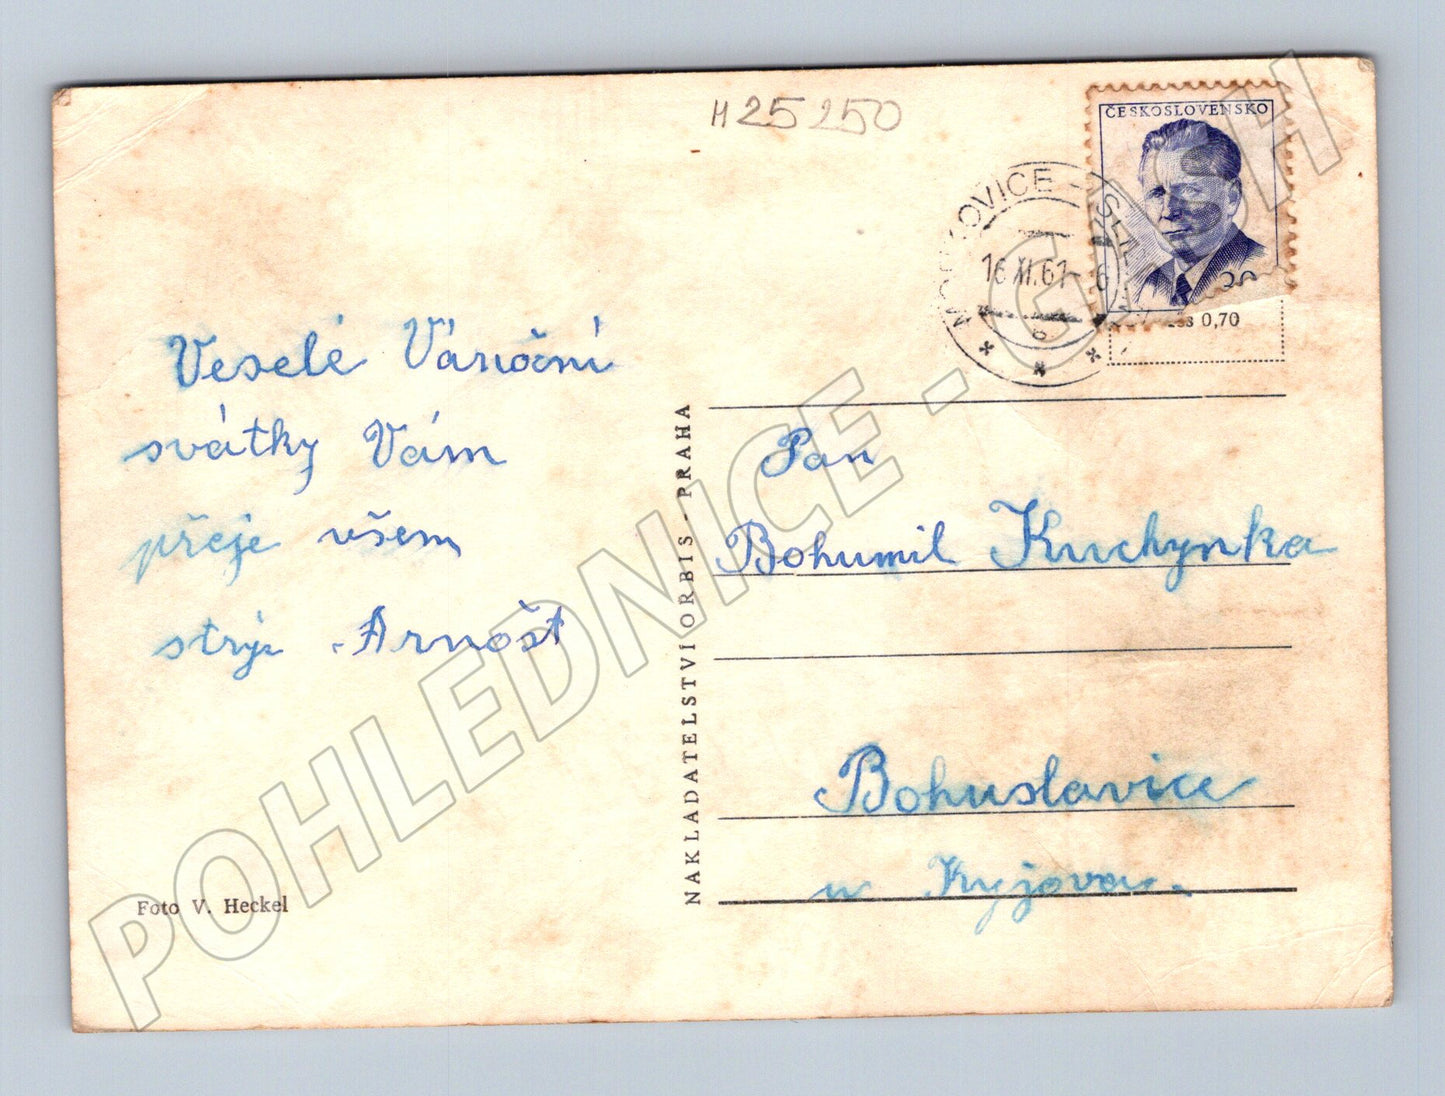 H25250
ČESKOSLOVENSKO
30
Kčs 0,70
16.XI.61-6
Veselé Vánoční
svátky Vám
přeje všem
strýc Arnošt
Foto V. Heckel
NAKLADATELSTVÍ ORBIS - PRAHA
Pan
Bohumil Kuchynka
Bohuslavice
u Kyjova.
POHLEDNICE - GASH